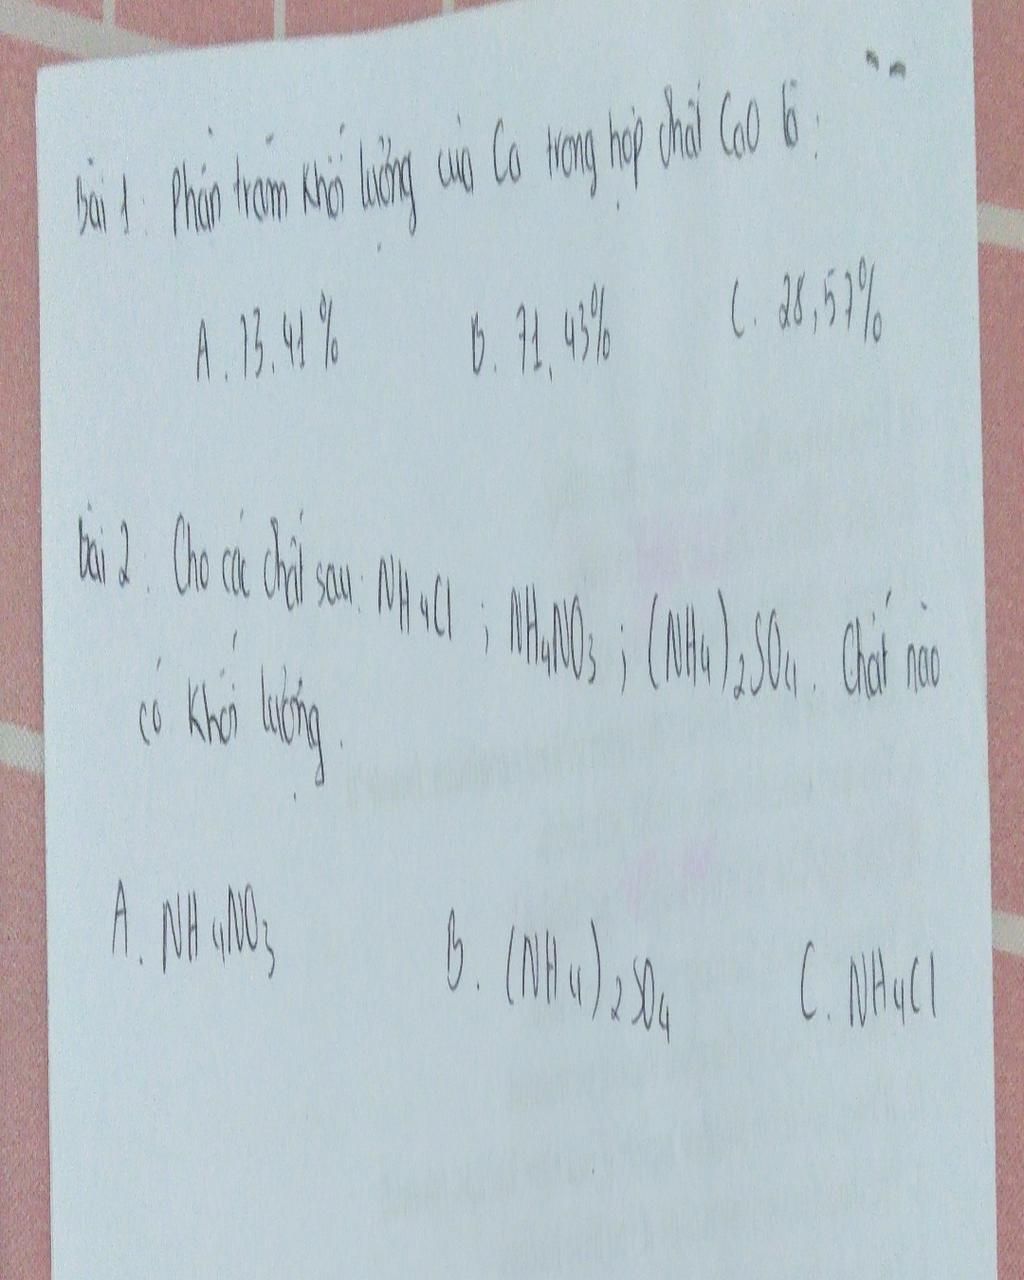 Bài 1: Phần trăm khối lượng của Ca trong hợp chất CaO là:
A. 73.41% B. 71,43% C. 28,57%
Bài 2. Cho các chất sau: NH4Cl ; NH4NO3 ; (NH4)2SO4. Chất nào
có khối lượng.
A. NH4NO3 B. (NH4)2SO4 C. NH4Cl